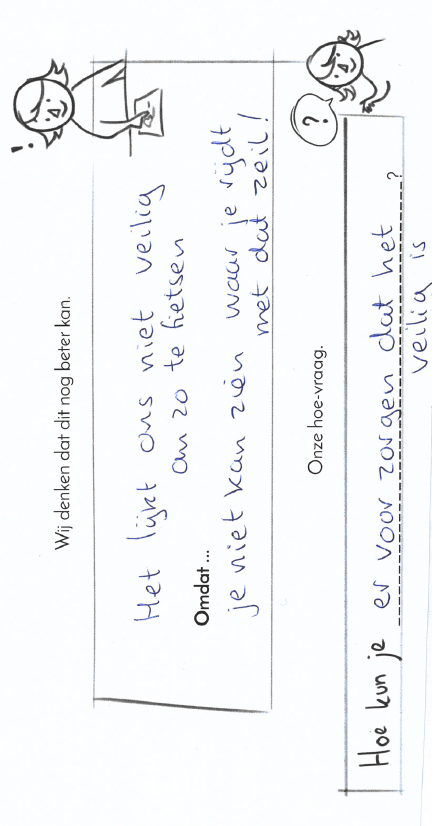 Wij denken dat dit nog beter kan.
!
Het lijkt ons niet veilig
om zo te fietsen
Omdat ...
je niet kan zien waar je rijdt
met dat zeil!
Onze hoe-vraag.
?
Hoe kun je er voor zorgen dat het ?
veilig is